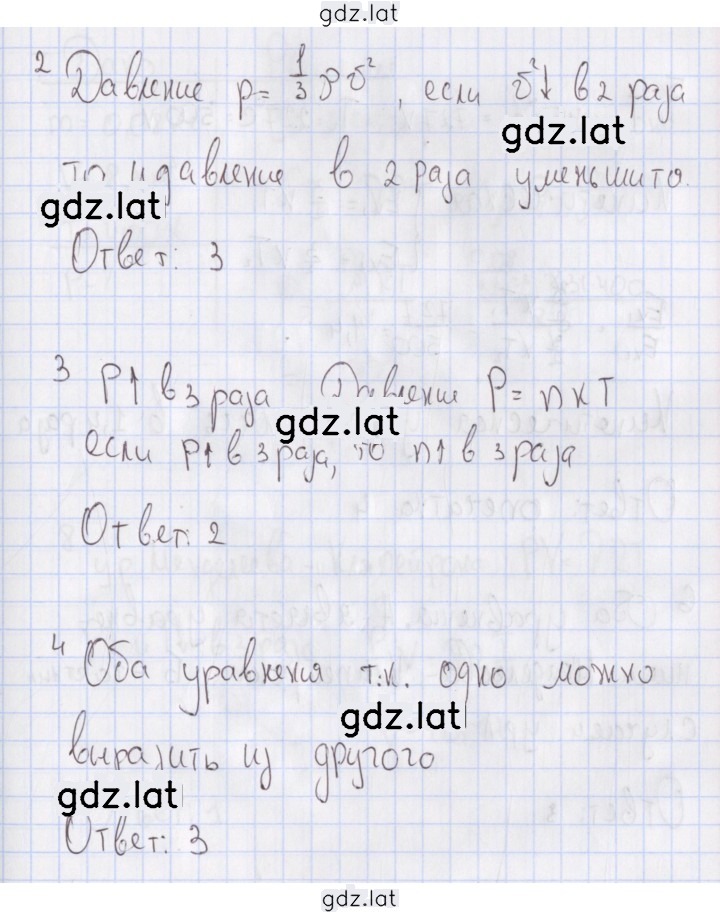 gdz.lat
2 Давление p = 1/3 ρ υ², если υ²↓ в 2 раза
gdz.lat
то и давление в 2 раза уменьшито.
gdz.lat
Ответ: 3
3 P↑ в 3 раза Давление P = nкT
gdz.lat
если p↑ в 3 раза, то n↑ в 3 раза
Ответ: 2
4 Оба уравнения т.к. одно можно
gdz.lat
выразить из другого
gdz.lat
Ответ: 3
gdz.lat